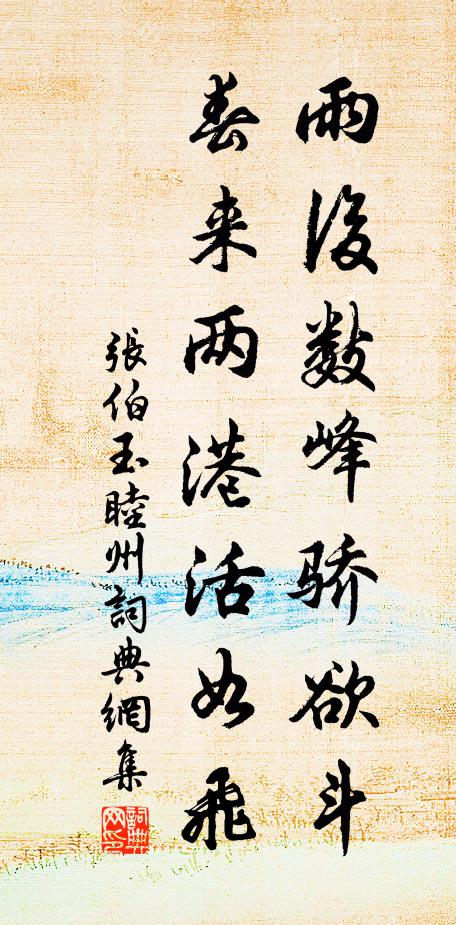 雨後数峰骄欲斗
春来两港活如飛
張伯玉睦州詞典網集
詞典网印